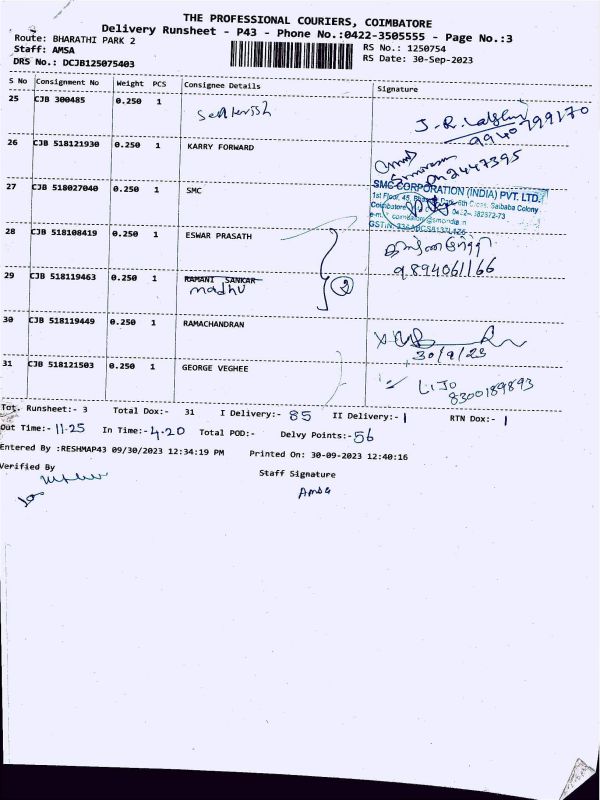 THE PROFESSIONAL COURIERS, COIMBATORE
Delivery Runsheet - P43 - Phone No.:0422-3505555 - Page No.:3
Route: BHARATHI PARK 2 RS No.: 1250754
Staff: AMSA RS Date: 30-Sep-2023
DRS No.: DCJB125075403
S No Consignment No Weight PCS Consignee Details Signature
25 CJB 300485 0.250 1
26 CJB 518121930 0.250 1 KARRY FORWARD
27 CJB 518027040 0.250 1 SMC
SMC CORPORATION (INDIA) PVT. LTD.
28 CJB 518108419 0.250 1 ESWAR PRASATH
9894061166
29 CJB 518119463 0.250 1 RAMANI SANKAR
madhu 2
30 CJB 518119449 0.250 1 RAMACHANDRAN
30/9/23
31 CJB 518121503 0.250 1 GEORGE VEGHEE
LIJO
8300189893
Tot. Runsheet:- 3 Total Dox:- 31 I Delivery:- 85 II Delivery:- 1 RTN Dox:- 1
Out Time:- 11.25 In Time:- 4.20 Total POD:- Delvy Points:- 56
Entered By :RESHMAP43 09/30/2023 12:34:19 PM Printed On: 30-09-2023 12:40:16
Verified By Staff Signature
Amsa